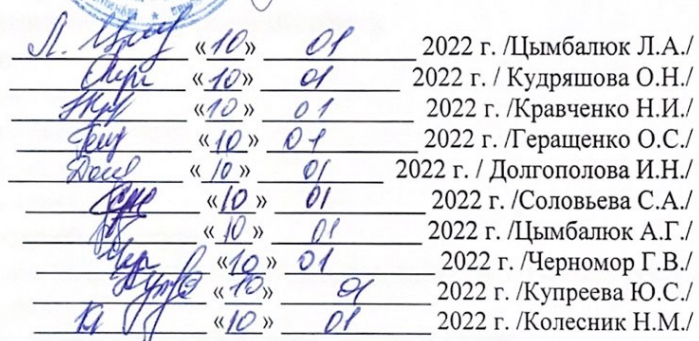 «10» 01 2022 г. /Цымбалюк Л.А./
«10» 01 2022 г. / Кудряшова О.Н./
«10» 01 2022 г. /Кравченко Н.И./
«10» 01 2022 г. /Геращенко О.С./
«10» 01 2022 г. / Долгополова И.Н./
«10» 01 2022 г. /Соловьева С.А./
«10» 01 2022 г. /Цымбалюк А.Г./
«10» 01 2022 г. /Черномор Г.В./
«10» 01 2022 г. /Купреева Ю.С./
«10» 01 2022 г. /Колесник Н.М./